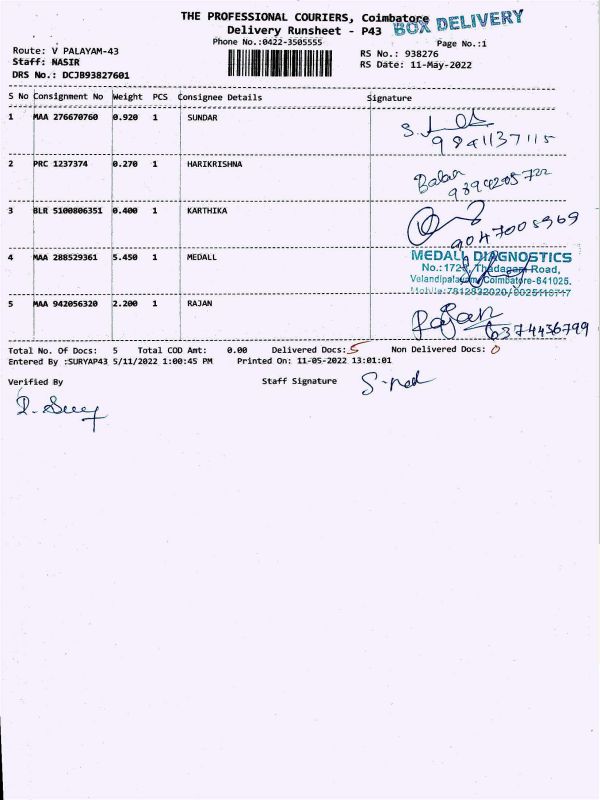 THE PROFESSIONAL COURIERS, Coimbatore
BOX DELIVERY
Delivery Runsheet - P43
Phone No.:0422-3505555
Page No.:1
Route: V PALAYAM-43
RS No.: 938276
Staff: NASIR
RS Date: 11-May-2022
DRS No.: DCJB93827601
S No Consignment No Weight PCS Consignee Details Signature
1 MAA 276670760 0.920 1 SUNDAR
9841137115
2 PRC 1237374 0.270 1 HARIKRISHNA
3 BLR 5100806351 0.400 1 KARTHIKA
9047005969
4 MAA 288529361 5.450 1 MEDALL
MEDALL DIAGNOSTICS
Road,
Coimbatore-641025.
5 MAA 942056320 2.200 1 RAJAN
Rajan
6374436799
Total No. Of Docs: 5 Total COD Amt: 0.00 Delivered Docs: 5 Non Delivered Docs: 0
Entered By :SURYAP43 5/11/2022 1:00:45 PM Printed On: 11-05-2022 13:01:01
Verified By Staff Signature